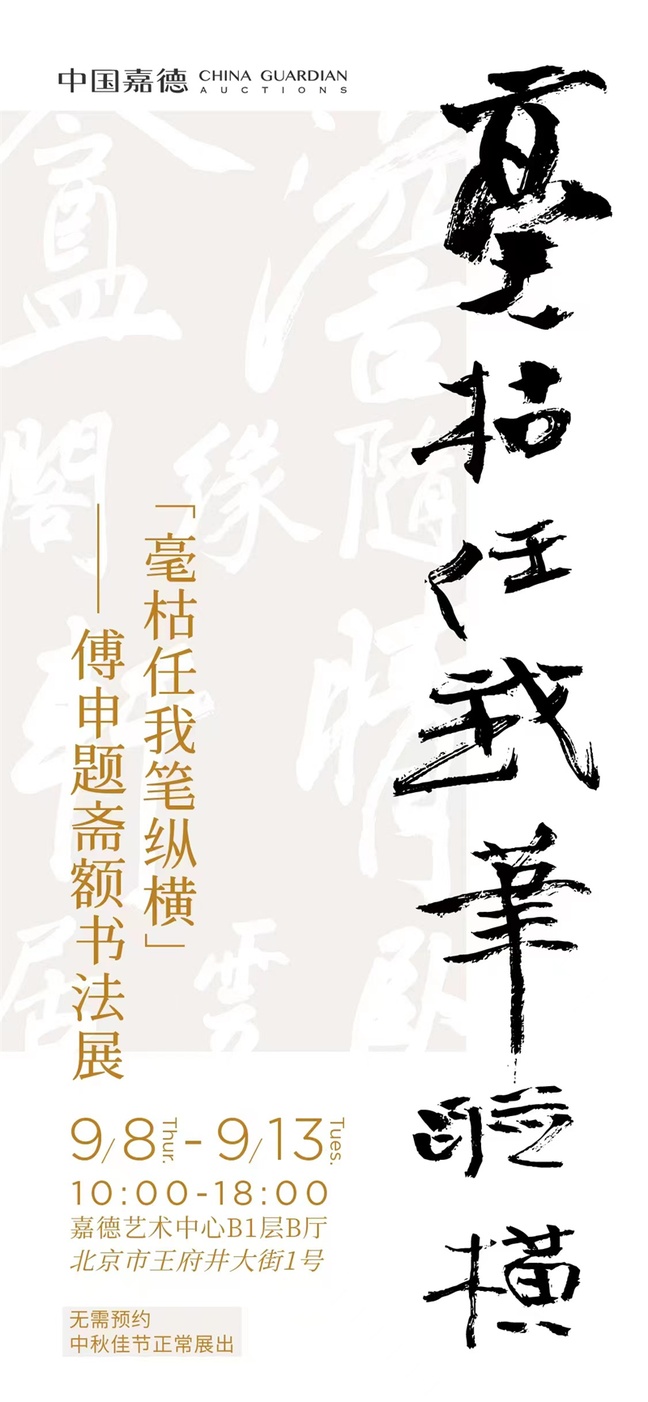 中国嘉德 CHINA GUARDIAN
AUCTIONS
毫枯任我筆縱橫
「毫枯任我笔纵横」
——傅申题斋额书法展
9/8 Thur. - 9/13 Tues.
10:00-18:00
嘉德艺术中心B1层B厅
北京市王府井大街1号
无需预约
中秋佳节正常展出
盦
閣 緣 隨
軒 晴
居 雲 臥